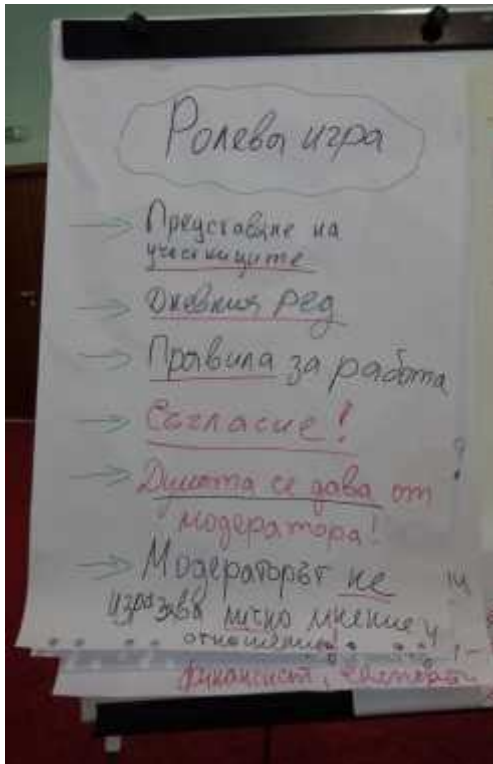 Ролева игра
→ Представяне на
участниците
→ Дневния ред
→ Правила за работа
→ Съгласие!
→ Думата се дава от
модератора!
→ Модераторът не
изразява лично мнение и
отношение!
финансист, експерт